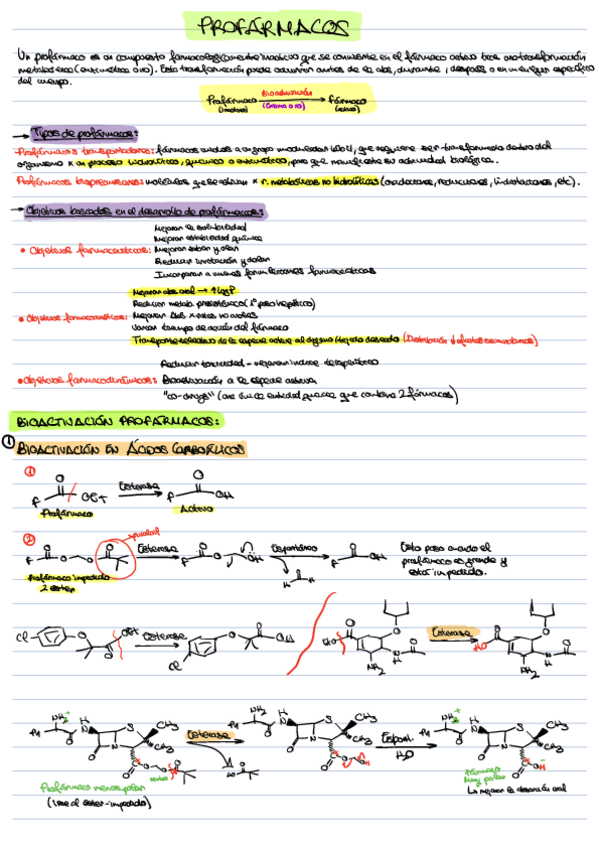 PROFÁRMACOS
Un profármaco es un compuesto farmacológicamente inactivo que se convierte en el fármaco activo tras una transformación
metabólica (enzimática o no). Esta transformación puede ocurrir antes de la abs, durante, después o en un lugar específico
del cuerpo.
Bioactivación
Profármaco → Fármaco
(Inactivo) (Enzima o no) (activo)
→ Tipos de profármacos:
Profármacos transportadores: fármacos unidos a un grupo modulador, que requiere ser transformado dentro del
organismo x un proceso hidrolítico, químico o enzimático, para que manifieste su actividad biológica.
Profármacos bioprecursores: moléculas que se activan x r. metabólicas no hidrolíticas (oxidaciones, reducciones, hidrataciones, etc).
→ Objetivos buscados en el desarrollo de profármacos:
Mejorar la solubilidad
Mejorar estabilidad química
• Objetivos farmacéuticos: Mejorar sabor y olor
Reducir irritación y dolor
Incorporar a nuevas formulaciones farmacéuticas
Mejorar abs oral → ↑ LogP
Reducir metab. presistémico (1º paso hepático)
• Objetivos farmacocinéticos: Mejorar abs x vías no orales
Variar tiempo de acción del fármaco
Transporte selectivo de la especie activa al órgano/tejido deseado (Distribución ↓ efectos secundarios)
Reducir toxicidad - mejorar índice terapéutico
• Objetivos farmacodinámicos: Bioactivación a la especie activa
"co-drugs" (una única entidad química que contiene 2 fármacos)
BIOACTIVACIÓN PROFÁRMACOS:
① BIOACTIVACIÓN EN ÁCIDOS CARBOXÍLICOS
①
F O OEt Esterasa F O OH
Profármaco Activo
② pivaloil
F O O O O Esterasa F O O OH Espontáneo F O OH Esto pasa cuando el
profármaco es grande y
está impedido.
Profármaco impedido
2 ester
H H
Cl O O OEt Esterasa Cl O O OH EtO O O N H O NH2 Esterasa HO O O N H O NH2
NH3+ H N S CH3 CH3 Esterasa NH2 H N S CH3 CH3 Espont. H2O NH3+ H N S CH3 CH3
Profármaco menos polar
(lleva el ester-impedido)
Fármaco
Muy polar
↳ mejorar la absorción oral